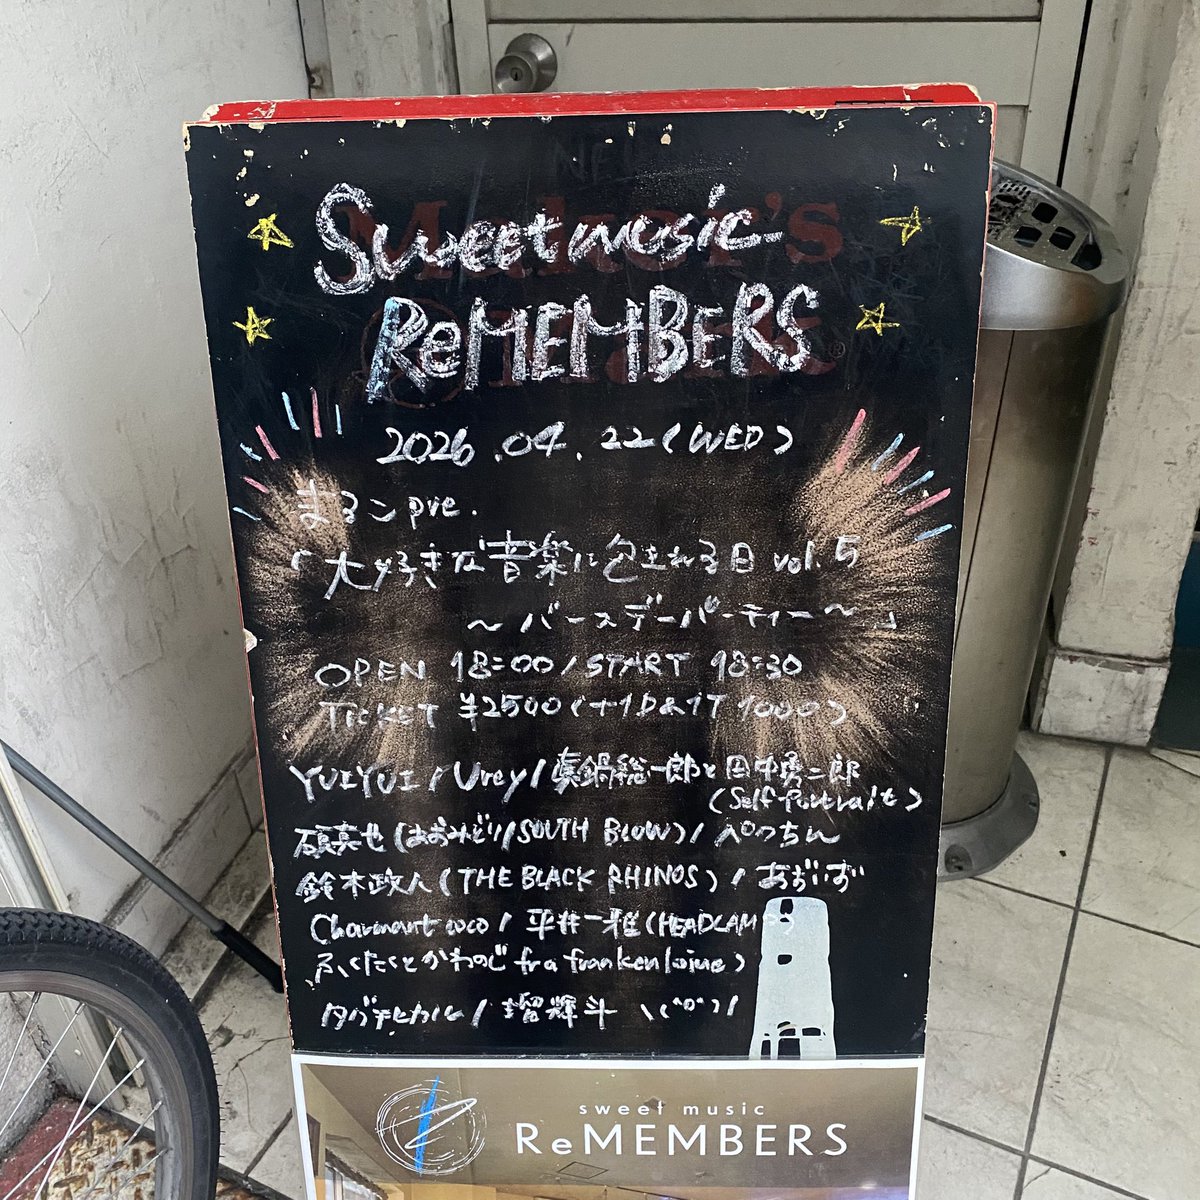 Sweet music
ReMEMBERS
2026.04.22(WED)
まるこpre.
「大好きな音楽に包まれる日 vol.5
～バースデーパーティー～」
OPEN 18:00/START 18:30
TICKET ¥2500(+1D&1T 1000)
YUIYUI/Urey/真鍋総一郎と田中勇二郎
(Self Portrait)
碩真也(あおみどり/SOUTH BLOW)/ぺのちん
鈴木政人(THE BLACK RHINOS)/あぢぃず
Charmant coco/平井一雅(HEADLAMP)
ふくたくとかわのじ fra franken
タガデヒカル/瑠輝斗 \(^o^)/
sweet music
ReMEMBERS